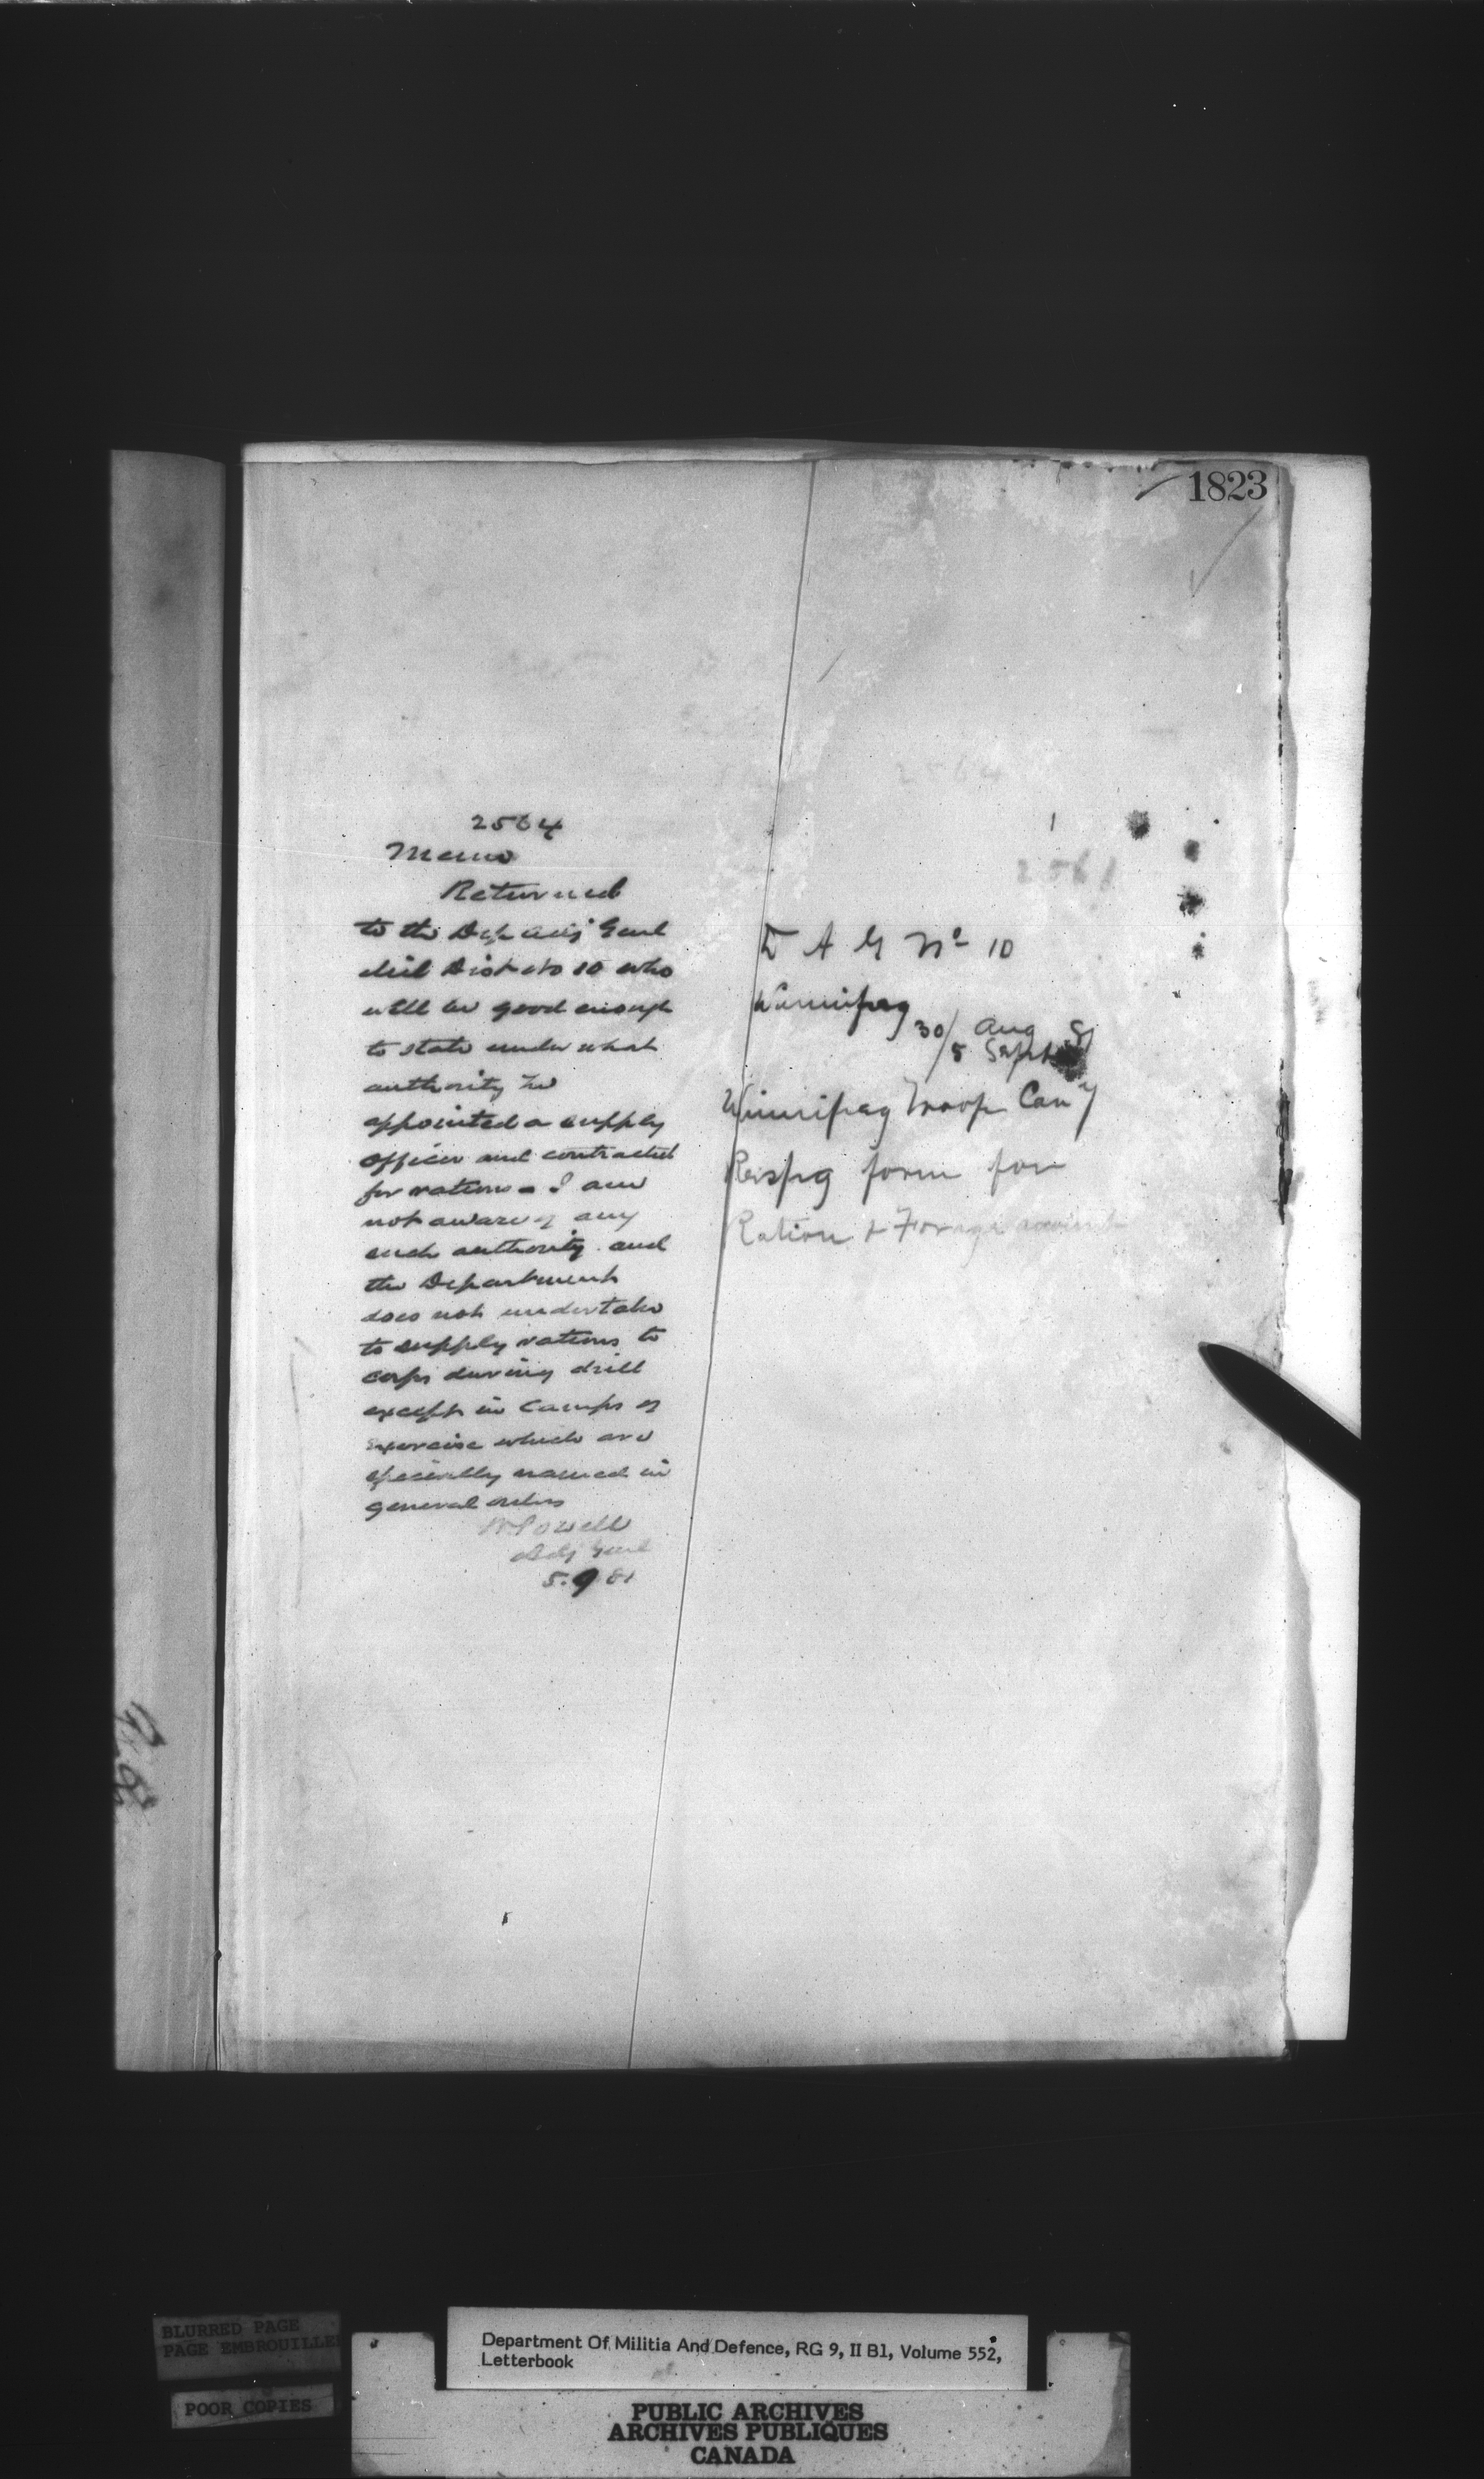 1823
2564
Memo
Returned
to the Dep Adj Genl
Mil Dist No 10 who
will be good enough
to state under what
authority he
appointed a supply
officer and contracted
for rations - I am
not aware of any
such authority and
the Department
does not undertake
to supply rations to
corps during drill
except in Camps of
exercise which are
specially named in
general orders
W Powell
Adj Genl
5.9 81
2564
D A G No 10
Winnipeg
30/ Aug 81
/5 Sept
Winnipeg Troop Cavy
Respg form for
Ration & Forage
BLURRED PAGE
PAGE EMBROUILLE
POOR COPIES
Department Of Militia And Defence, RG 9, II B1, Volume 552,
Letterbook
PUBLIC ARCHIVES
ARCHIVES PUBLIQUES
CANADA